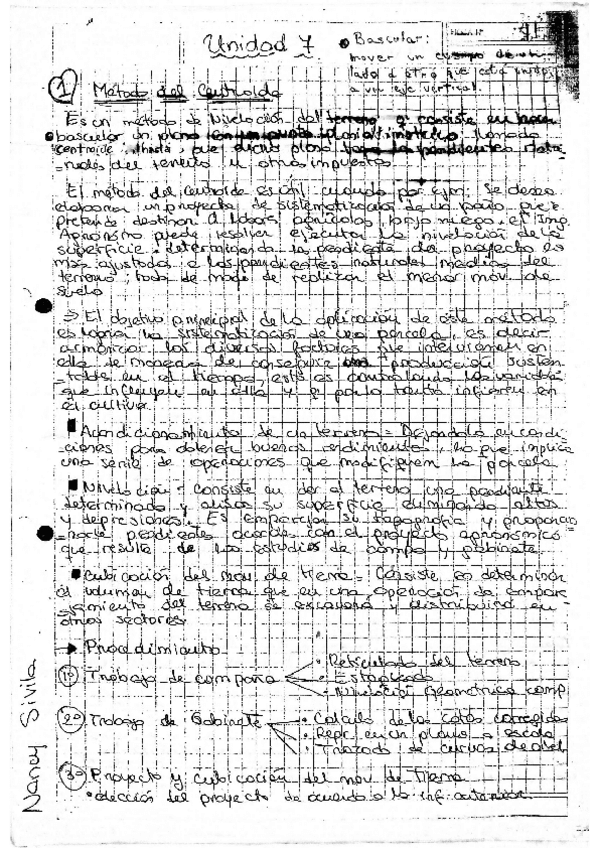 Unidad 7
• Bascular:
mover un cuerpo de un
lado a otro que está
a un eje vertical
1 Método del Centroide
Es un método de Nivelación del terreno q consiste en hacer
bascular un plano llamado
centroide, hasta que dicho plano
del terreno u otros impuestos.
El método del centroide es útil cuando por ejm: se desea
elaborar un proyecto de sistematización de un paño que se
pretende destinar a labores agrícolas bajo riego, el Ing.
Agrónomo puede resolver ejecutar la nivelación de la
superficie determinando la pendiente del proyecto lo
mas ajustados a las pendientes naturales medias del
terreno; todo de modo de realizar el menor mov. de
suelo
⇒ El objetivo principal de la aplicación de este método
es lograr la sistematización de una parcela, es decir
armonizar los diversos factores que intervienen en
ella de manera de conseguir producción susten-
table en el tiempo, esto es controlando las variables
que influyen en ella y q por lo tanto infieren en
el cultivo.
▪ Acondicionamiento de un terreno = Dejandolo en condi-
ciones para obtener buenos rendimientos, lo que implica
una serie de operaciones que modifiquen la parcela
▪ Nivelación = consiste en dar al terreno una pendiente
determinada y alisar su superficie eliminando altos
y depresiones. Es emparejar su topografía y proporcio-
narle pendientes acorde con el proyecto agronómico
que resulte de los estudios de campo y gabinete.
▪ Cubicación del mov. de tierra = Consiste en determinar
el volumen de tierra que en una operación de empare-
jamiento del terreno se excavará y distribuirá en
otros sectores.
→ Procedimiento
1º Trabajo de campaña
• Reticulado del terreno
• Estaqueado
• Nivelación Geometrica comp.
2º Trabajo de Gabinete
• Calculo de las cotas corregidas
• Repr. en un plano a escala
• Trazado de curvas de nivel
3º Proyecto y cubicación del mov. de tierra
• elección del proyecto de acuerdo a la inf. anterior.
Nancy Sivila